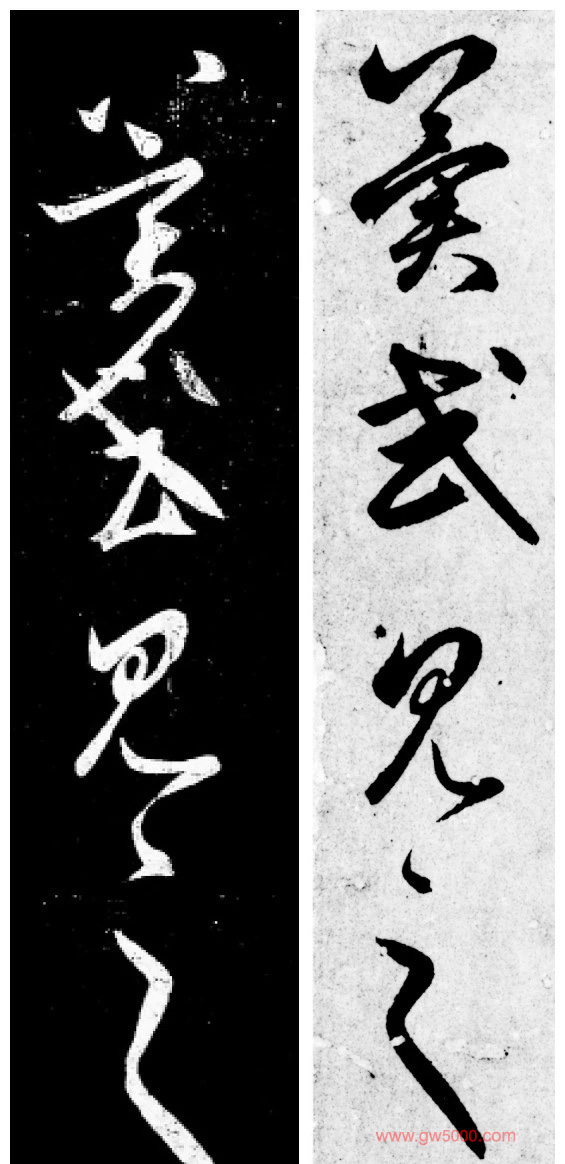 冀或見之
冀或見之
www.gw5000.com